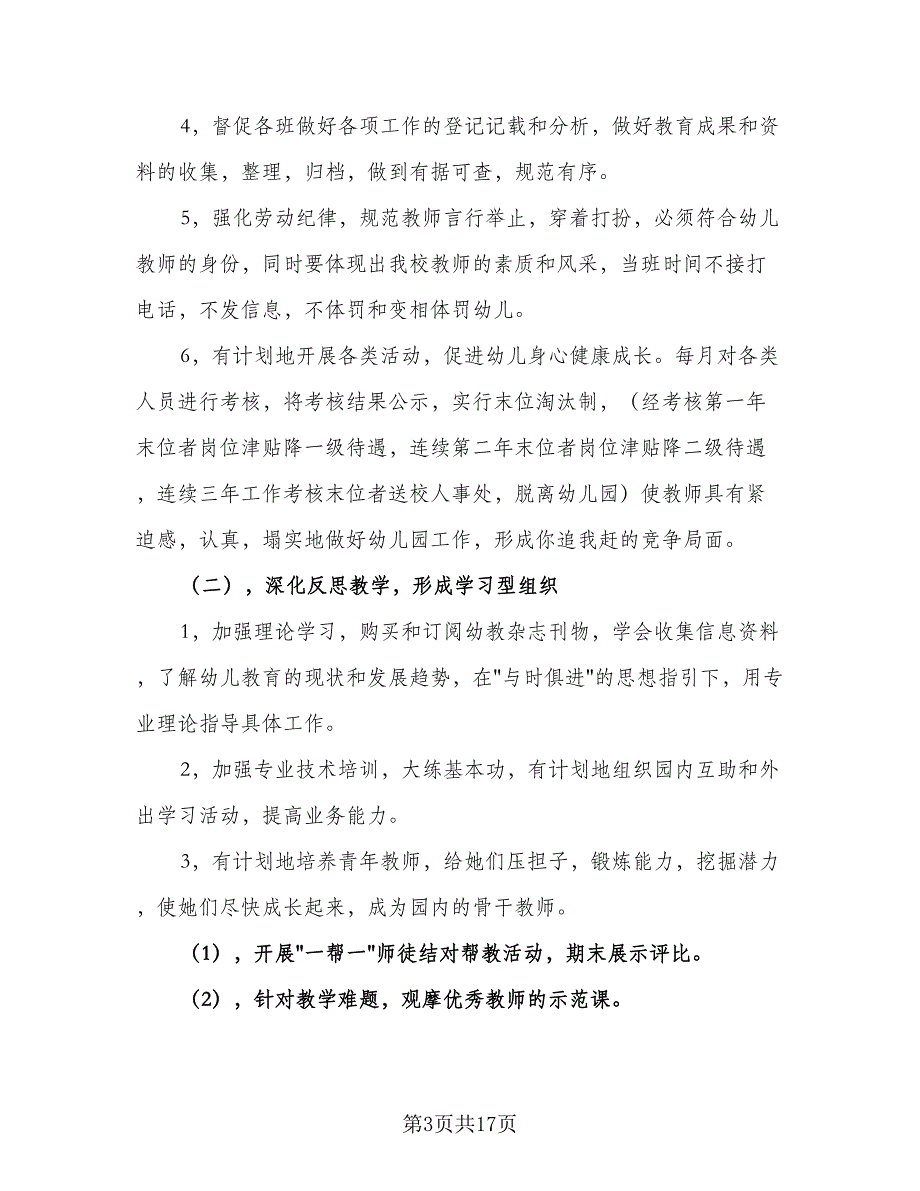 4，督促各班做好各项工作的登记记载和分析，做好教育成果和资
料的收集，整理，归档，做到有据可查，规范有序。
5，强化劳动纪律，规范教师言行举止，穿着打扮，必须符合幼儿
教师的身份，同时要体现出我校教师的素质和风采，当班时间不接打
电话，不发信息，不体罚和变相体罚幼儿。
6，有计划地开展各类活动，促进幼儿身心健康成长。每月对各类
人员进行考核，将考核结果公示，实行末位淘汰制，（经考核第一年
末位者岗位津贴降一级待遇，连续第二年末位者岗位津贴降二级待遇
，连续三年工作考核末位者送校人事处，脱离幼儿园）使教师具有紧
迫感，认真，塌实地做好幼儿园工作，形成你追我赶的竞争局面。
（二），深化反思教学，形成学习型组织
1，加强理论学习，购买和订阅幼教杂志刊物，学会收集信息资料
，了解幼儿教育的现状和发展趋势，在"与时俱进"的思想指引下，用专
业理论指导具体工作。
2，加强专业技术培训，大练基本功，有计划地组织园内互助和外
出学习活动，提高业务能力。
3，有计划地培养青年教师，给她们压担子，锻炼能力，挖掘潜力
，使她们尽快成长起来，成为园内的骨干教师。
（1），开展"一帮一"师徒结对帮教活动，期末展示评比。
（2），针对教学难题，观摩优秀教师的示范课。
第3页共17页